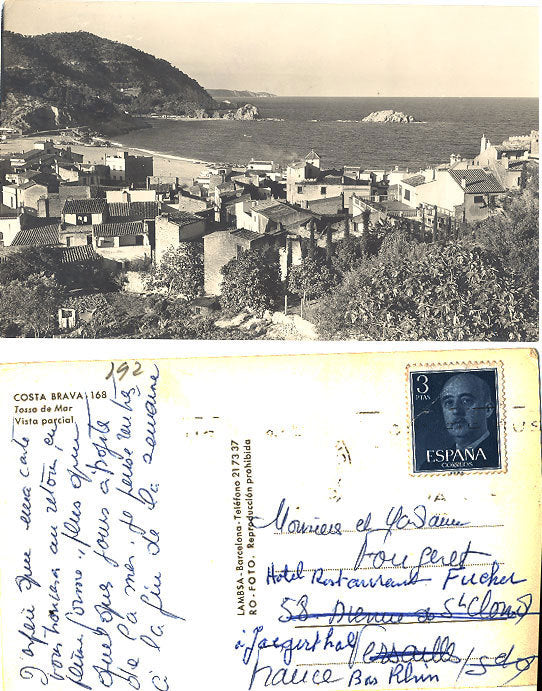 COSTA BRAVA 168
Tossa de Mar
Vista parcial
192
J'espère que ma carte
vous trouvera au retour, en
pleine forme. Plus que
quelques jours à profiter
de la mer. Je pense rentrer
à la fin de la semaine
LAMBSA - Barcelona - Teléfono 21 73 37
RO - FOTO - Reproducción prohibida
3
PTAS
ESPAÑA
CORREOS
Monsieur et Madame
Fougeret
Hotel Restaurant Fucher
58 Avenue de St Cloud
à Jaegerthal Versailles / S et O
France Bas Rhin